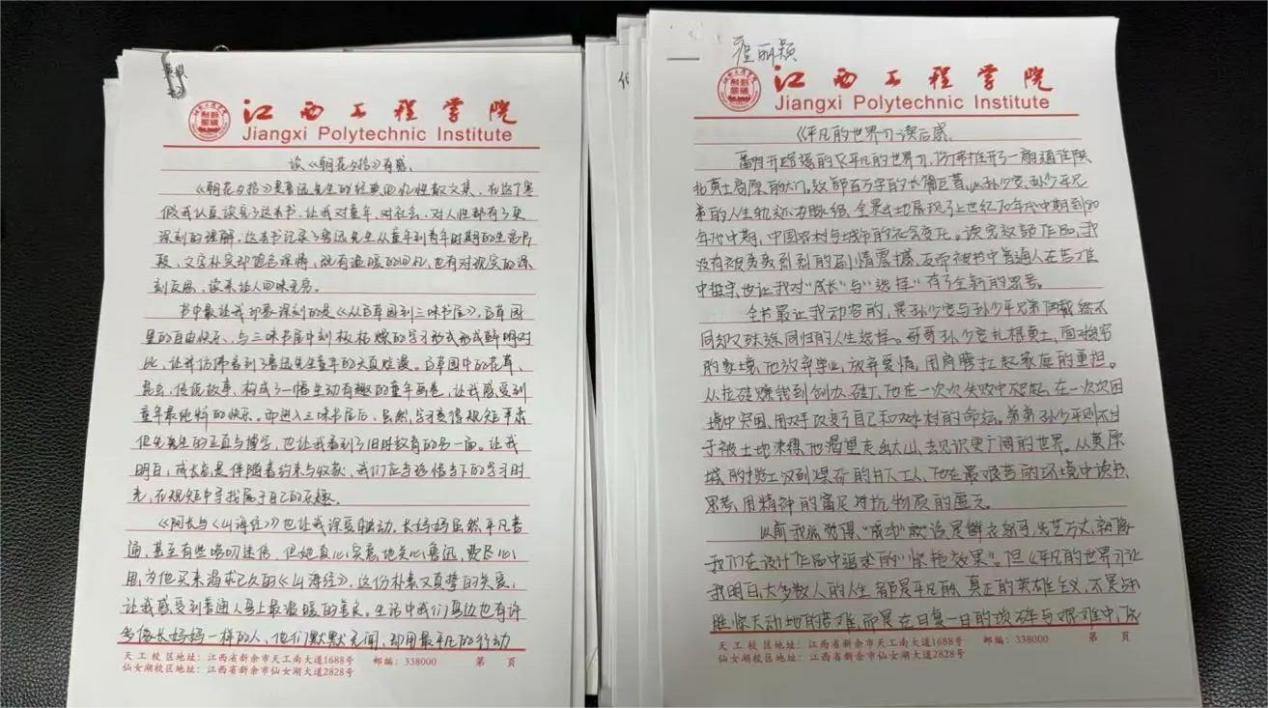 江西工程学院
Jiangxi Polytechnic Institute
读《朝花夕拾》有感.
《朝花夕拾》是鲁迅先生的经典回忆性散文集,在这个寒
假我认真读完了这本书,让我对童年,对社会,对人性都有了更
深刻的理解。这本书记录了鲁迅先生从童年到青年时期的生活片
段,文字朴实却饱含深情,既有温暖的回忆,也有对现实的深
刻反思,读来让人回味无穷。
书中最让我印象深刻的是《从百草园到三味书屋》,百草园
里的自由快乐,与三味书屋中刻板枯燥的学习形式形成鲜明对
比,让我仿佛看到了鲁迅先生童年的天真烂漫。百草园中的花草,
昆虫,传说故事,构成了一幅生动有趣的童年画卷,让我感受到
童年最纯粹的快乐。而进入三味书屋后,虽然学习变得规矩严肃
但先生的正直与博学,也让我看到了旧时教育的另一面。让我
明白,成长总是伴随着约束与收敛,我们应当珍惜当下的学习时
光,在规矩中寻找属于自己的乐趣。
《阿长与《山海经》也让我深受触动,长妈妈虽然平凡普
通,甚至有些唠叨迷信,但她真心实意地关心鲁迅,费尽心
用,为他买来渴求已久的《山海经》,这份朴素又真挚的关爱,
让我感受到普通人身上最温暖的善良。生活中我们身边也有许
多像长妈妈一样的人,他们默默无闻,却用最平凡的行动
天工校区地址:江西省新余市天工南大道1688号 邮编:338000 第 页
仙女湖校区地址:江西省新余市仙女湖大道2828号
丽颖
江西工程学院
Jiangxi Polytechnic Institute
《平凡的世界》读后感.
翻开路遥的《平凡的世界》,仿佛推开了一扇通往陕
北黄土高原的大门。这部百万字的长篇巨著,以孙少安,孙少平兄
弟的人生轨迹为脉络,全景式地展现了上世纪70年代中期到80
年代中期,中国农村与城市的社会变化。读完这部作品,我
没有被轰轰烈烈的剧情震撼,反而被书中普通人在苦难
中坚守,也让我对“成长”与“选择”有了全新的思考。
全书最让我动容的,是孙少安与孙少平兄弟俩截然不
同却又殊途同归的人生选择。哥哥孙少安扎根黄土,面对贫穷
的家境,他放弃学业,放弃爱情,用肩膀扛起家庭的重担。
从拉砖赚钱到创办砖厂,他在一次次失败中崛起,在一次次困
境中突围,用双手改变了自己和双水村的命运。弟弟孙少平则不甘
于被土地束缚,他渴望走出大山,去见识更广阔的世界。从黄原
城的揽工汉到煤矿的井下工人,他在最艰苦的环境中读书、
思考,用精神的富足对抗物质的匮乏。
以前我总觉得“成功”就该是鲜衣怒马,光芒万丈,就像
我们在设计作品中追求的“惊艳效果”。但《平凡的世界》让
我明白,大多数人的人生都是平凡的,真正的英雄主义,不是
惊天动地的壮举,而是在日复一日的琐碎与艰难中,
天工校区地址:江西省新余市天工南大道1688号 邮编:338000 第 页
仙女湖校区地址:江西省新余市仙女湖大道2828号